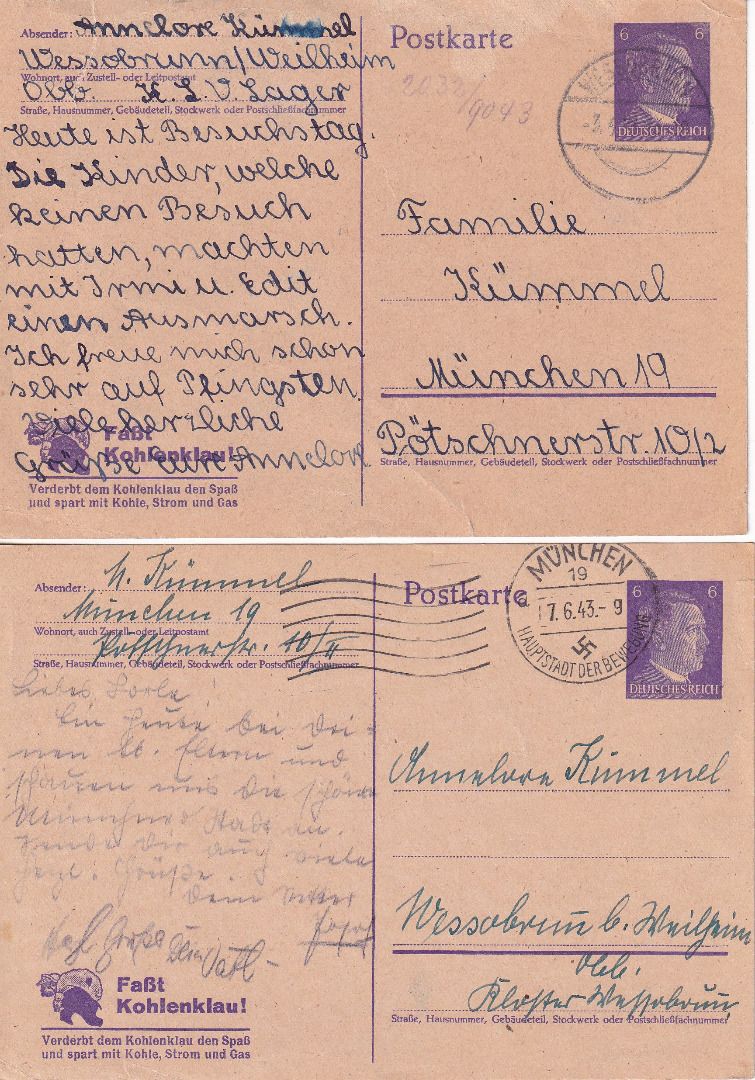 Absender: Annelore Kümmel
Wessobrunn/Weilheim
Wohnort, auch Zustell- oder Leitpostamt
Obb. K.L.V. Lager
Straße, Hausnummer, Gebäudeteil, Stockwerk oder Postschließfachnummer
Heute ist Besuchstag.
Die Kinder, welche
keinen Besuch
hatten, machten
mit Irmi u. Edit
einen Ausmarsch.
Ich freue mich schon
sehr auf Pfingsten.
Viele herzliche
Grüße eure Annelore
Faßt
Kohlenklau!
Verderbt dem Kohlenklau den Spaß
und spart mit Kohle, Strom und Gas
Postkarte
2032/
9043
6 6
DEUTSCHES REICH
Familie
Kümmel
München 19
Pötschnerstr. 10/2
Straße, Hausnummer, Gebäudeteil, Stockwerk oder Postschließfachnummer
Absender: M. Kümmel
München 19
Wohnort, auch Zustell- oder Leitpostamt
Pötschnerstr. 10/II
Straße, Hausnummer, Gebäudeteil, Stockwerk oder Postschließfachnummer
Liebes Lorle!
Bin heute bei Dei-
nen lb. Eltern und
schauen uns die schöne
Münchner Stadt an.
Sende Dir auch viele
herzl. Grüße.
Dein Vetter
Josef
Dein Vatl
Faßt
Kohlenklau!
Verderbt dem Kohlenklau den Spaß
und spart mit Kohle, Strom und Gas
Postkarte
MÜNCHEN
19
7.6.43.-9
HAUPTSTADT DER BEWEGUNG
6 6
DEUTSCHES REICH
Annelore Kümmel
Wessobrunn b. Weilheim
Obb.
Kloster Wessobrunn
Straße, Hausnummer, Gebäudeteil, Stockwerk oder Postschließfachnummer